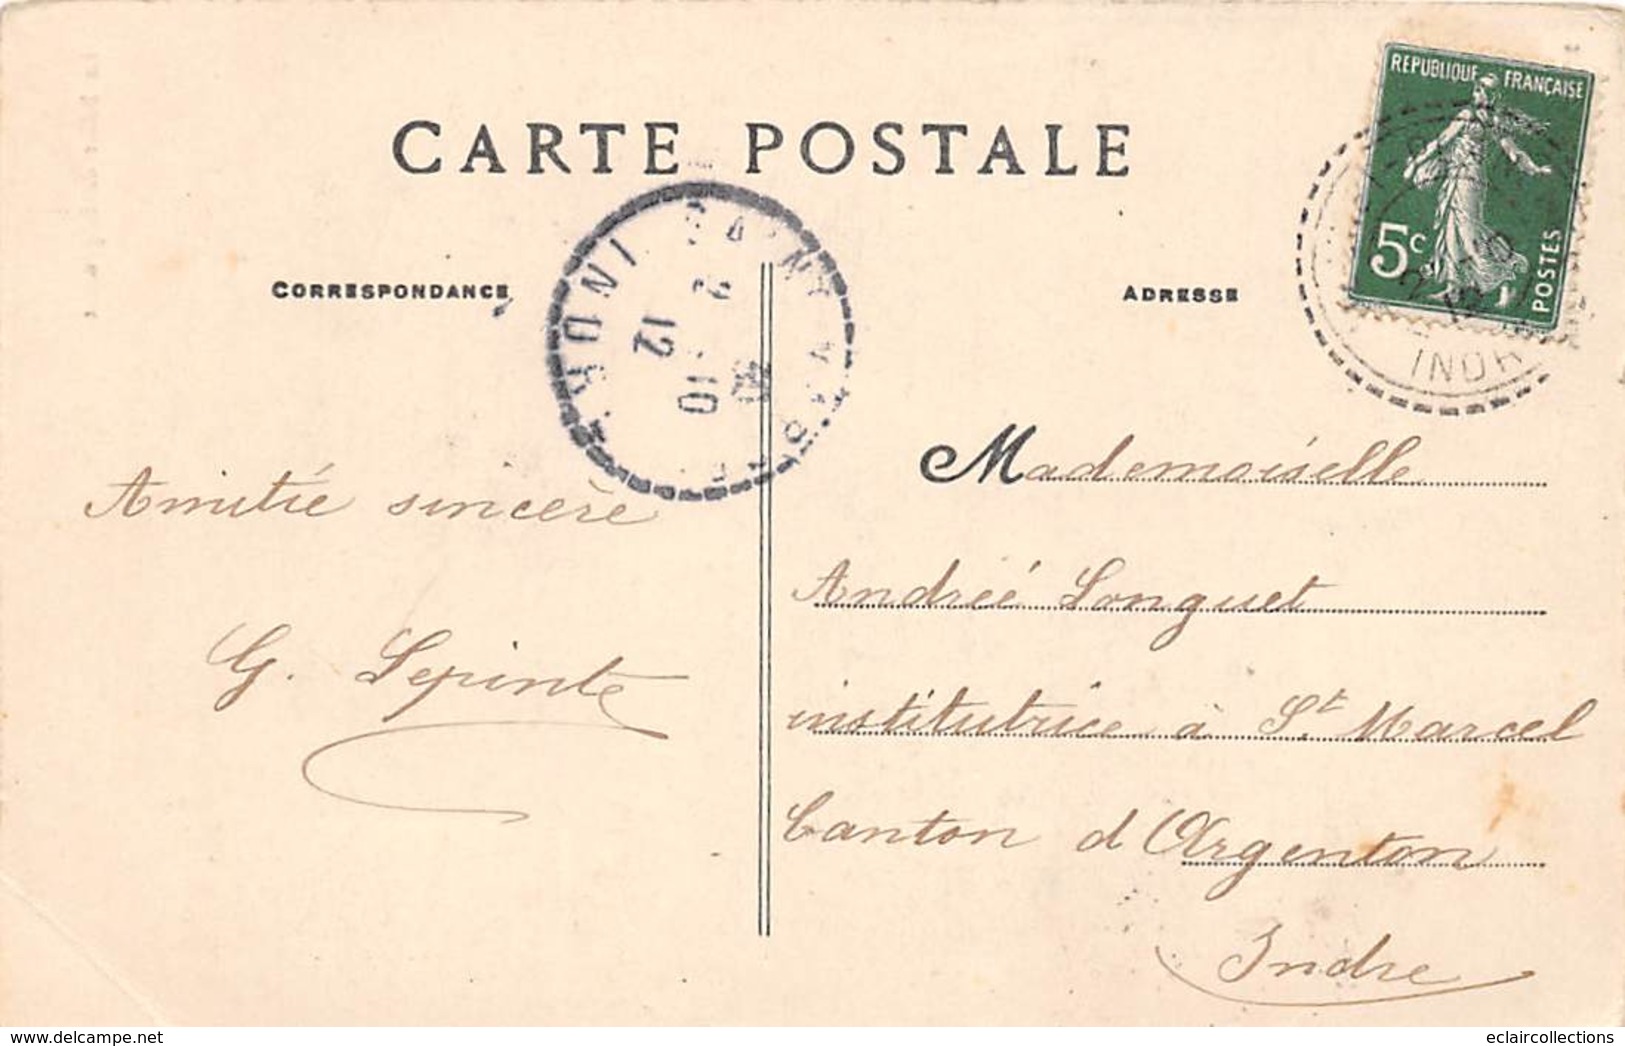 CARTE POSTALE
CORRESPONDANCE
ADRESSE
REPUBLIQUE FRANÇAISE
5c
POSTES
INDR
SAINT MARCEL
INDRE
12
10
Amitié sincère
G. Lepinte
Mademoiselle
Andréé Longuet
institutrice à St. Marcel
Canton d'Argenton
Indre
delcampe.net
eclaircollections